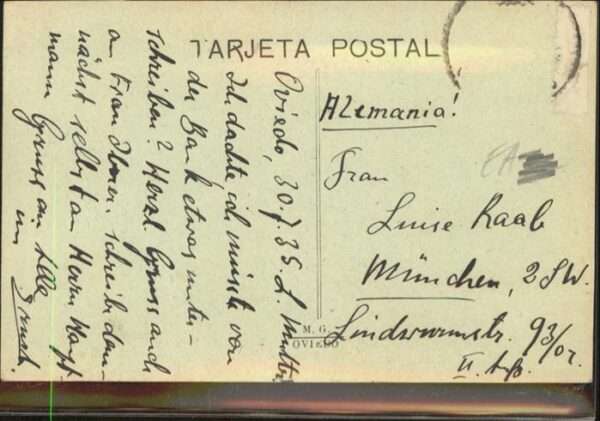 TARJETA POSTAL
Oviedo, 30.7.35. L. Mutter
Ich dachte ich müsste von
der Bank etwas unter-
schreiben? Herzl. Gruss auch
an Frau schreibe dem-
nächst selbst an Herrn Haupt-
mann Gruss an alle
Alemania!
Frau
Luise Raab
München, 2 SW.
Lindwurmstr. 93/
II.
M. G.
OVIEDO